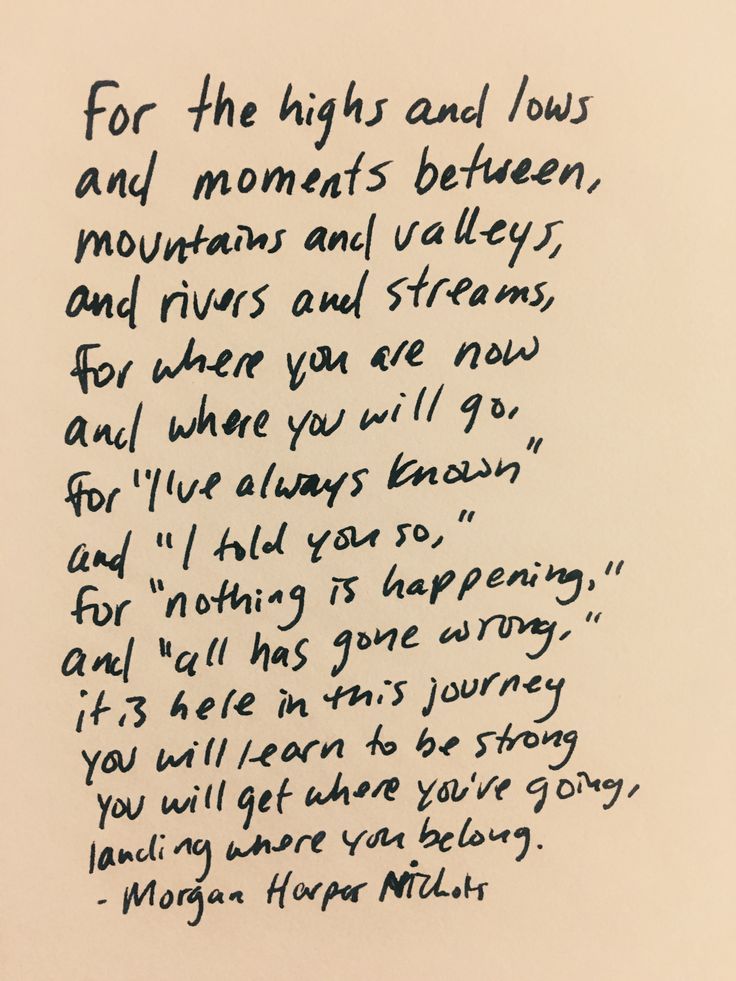 For the highs and lows
and moments between,
mountains and valleys,
and rivers and streams,
for where you are now
and where you will go,
for "I've always known"
and "I told you so,"
for "nothing is happening,"
and "all has gone wrong,"
it is here in this journey
you will learn to be strong
you will get where you've going,
landing where you belong.
- Morgan Harper Nichols